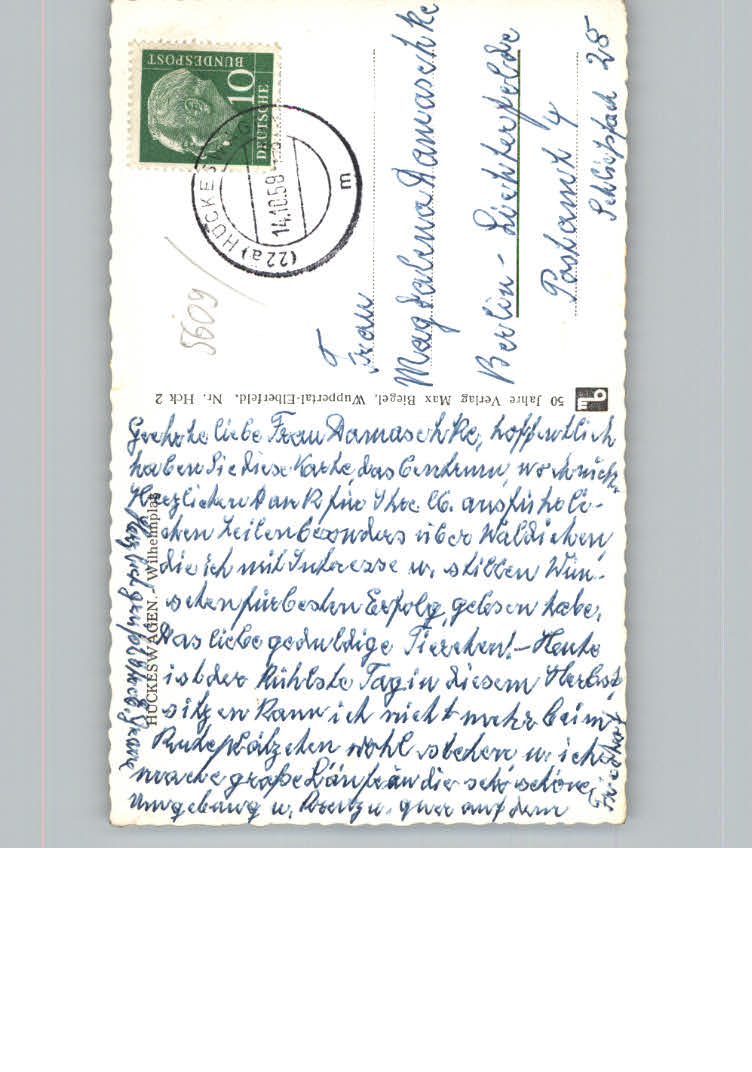 DEUTSCHE
BUNDESPOST
10
(22a) HÜCKESWAGEN
14.10.58
m
5609
Frau
Magdalena Damaschke
Berlin - Lichterfelde
Postamt 4
Schließfach 25
50 Jahre Verlag Max Biegel, Wuppertal-Elberfeld. Nr. Hck 2
mb
HÜCKESWAGEN. - Wilhelmplatz
Geehrte liebe Frau Damaschke, hoffentlich
haben Sie diese Karte, das Centrum, noch nicht.
Herzlichen Dank für Ihre lb. ausführli-
chen Zeilen besonders über Waldichen,
die ich mit Interesse u. stillen Wün-
schen für besten Erfolg, gelesen habe.
Das liebe geduldige Tierchen! - Heute
ist der kühlste Tag in diesem Herbst,
sitzen kann ich nicht mehr beim
Ruheplätzchen wohl stehen u. ich
mache große Läufe in die sehr schöne
Umgebung u. kreuz u. quer auf dem
Friedhof
Herzlich